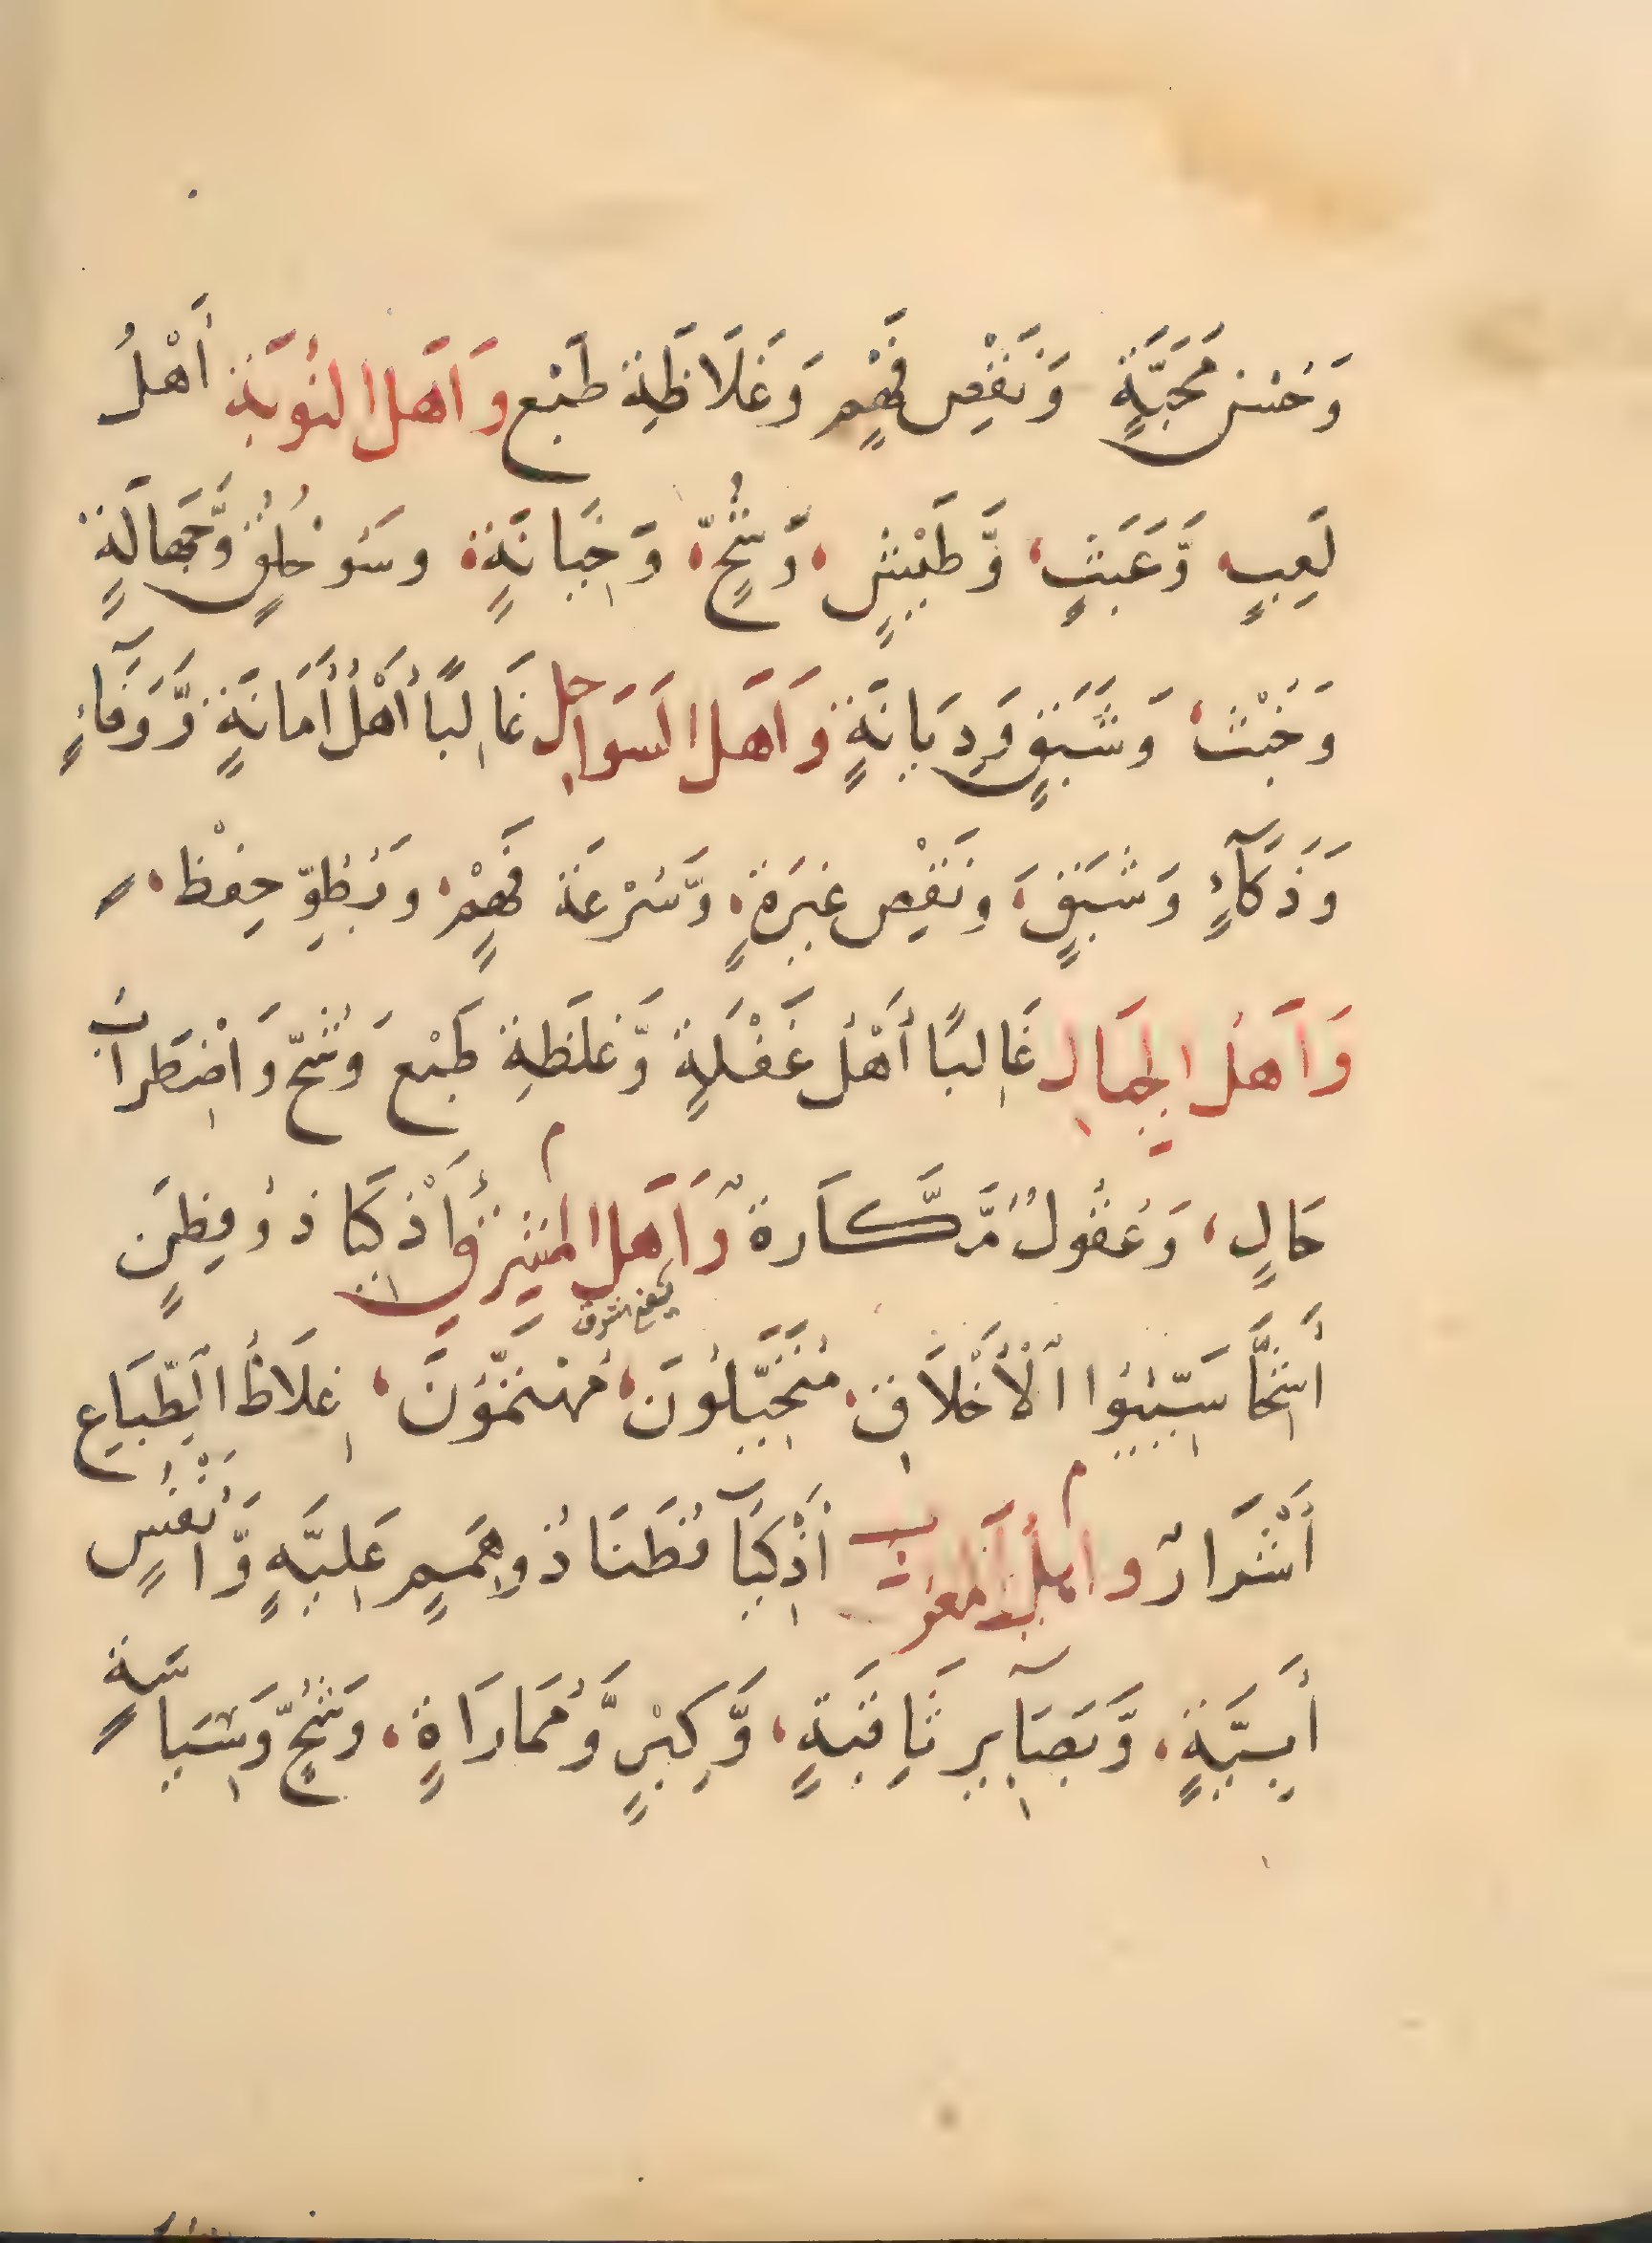 وَحُسْنِ مَحَبَّةٍ وَنَقْصِ فَهْمٍ وَغَلَاظَةِ طَبْعٍ وَاَهْلُ النُّوبَةِ أَهْلُ
لَعِبٍ، وَّعَبَثٍ، وَّطَيْشٍ، وَشُحٍّ، وَجَبَانَةٍ، وسَوخُلُقٍ وَّجَهالَةٍ
وَخُبْثٍ، وَشَبَقٍ وَدِيَانَةٍ وَاَهْلُ السَوَاحِلِ غَالِبًا أَهْلُ أَمَانَةٍ وَّوَفَاءٍ
وَذَكَآءٍ وَشَبَقٍ، وَنَقْصِ غَيْرَةٍ، وَّسُرْعَةِ فَهْمٍ، وَبُطُوِّ حِفْظٍ،
وَاَهْلُ الْجِبَالِ غَالِبًا أَهْلُ غَفْلَةٍ وَّغِلْظَةِ طَبْعٍ وَشُحٍّ وَاضْطِرَابِ
حَالٍ، وَعُقُولٌ مَّكَّارَةٌ وَاَهْلُ الْمَشْرِقِ أَذْكِيَا ذُو فِطَنٍ
أَشِحَّا سَيِّئُوا الْأَخْلَاقِ، مُتَخَيِّلُونَ، مُهْتَمُّونَ، غِلَاظُ الطِّبَاعِ
أَشْرَارٌ وَاهْلُ الْمغرب أَذْكِيَآ فُطَنَا ذُو هِمَمٍ عَلِيَّةٍ وَّأَنْفُسٍ
أَبِيَّةٍ، وَّبَصَآيِرِ ثَاقِبَةٍ، وَّكِبْرٍ وَّمُمَارَاةٍ، وَشُحٍّ وَسِيَاسَةٍ